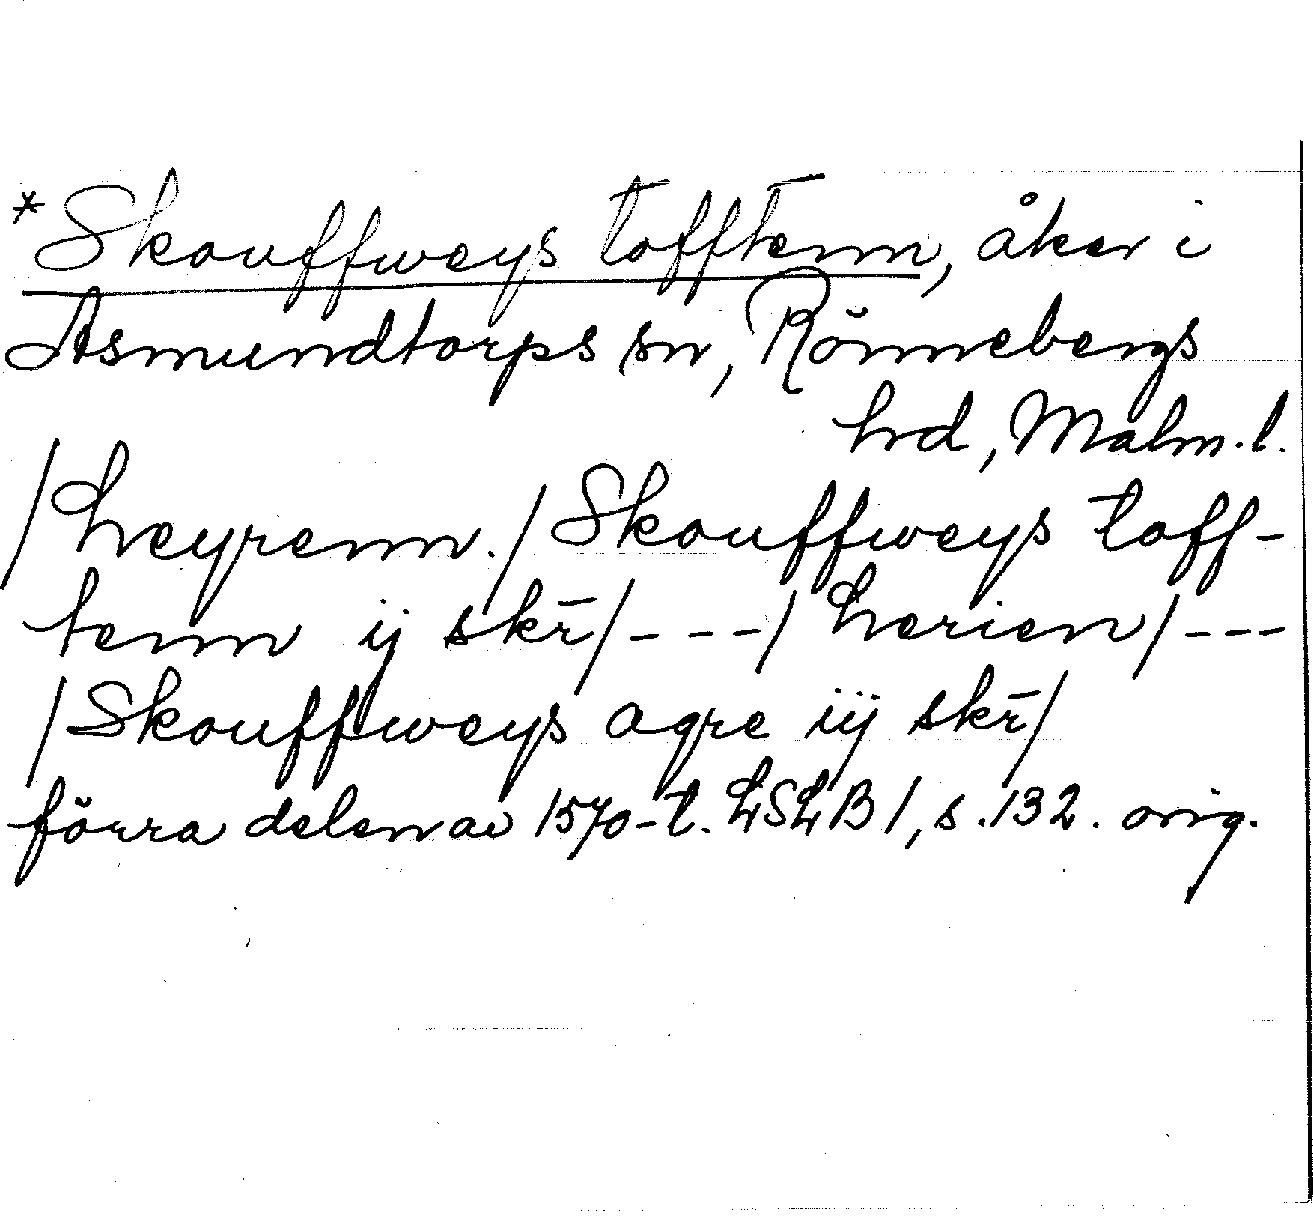 *Skouffweys tofftenn, åker i
Asmundtorps sn, Rönnebergs
hrd, Malm. l.
/heyrenn./Skouffweys toff-
tenn ij skr̄/---/herien/---
/Skouffweys agre iij skr̄/
förra delen av 1570-t. LSLB 1, s. 132. orig.